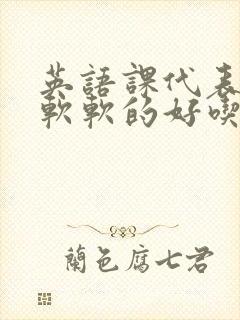 英語課代表
軟軟的好喫
蘭色腐七君